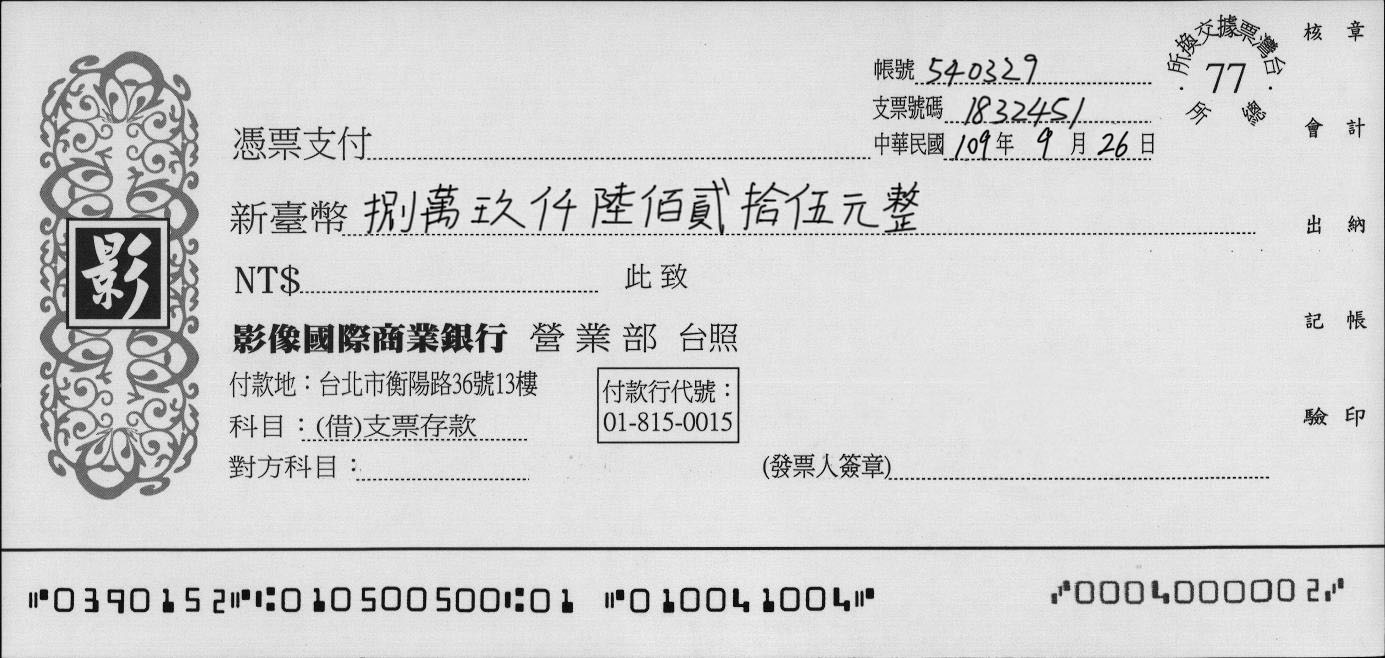 帳號 540329
台灣票據交換所
77
總所
支票號碼 1832451
憑票支付
中華民國 109 年 9 月 26 日
新臺幣 捌萬玖仟陸佰貳拾伍元整
NT$ 此致
影
影像國際商業銀行 營業部 台照
付款地：台北市衡陽路36號13樓
付款行代號：
01-815-0015
科目：(借)支票存款
對方科目：
(發票人簽章)
核章
會計
出納
記帳
驗印
⑈0390152⑈⑆010500500⑆01 ⑈010041004⑈ ⑇0004000002⑇